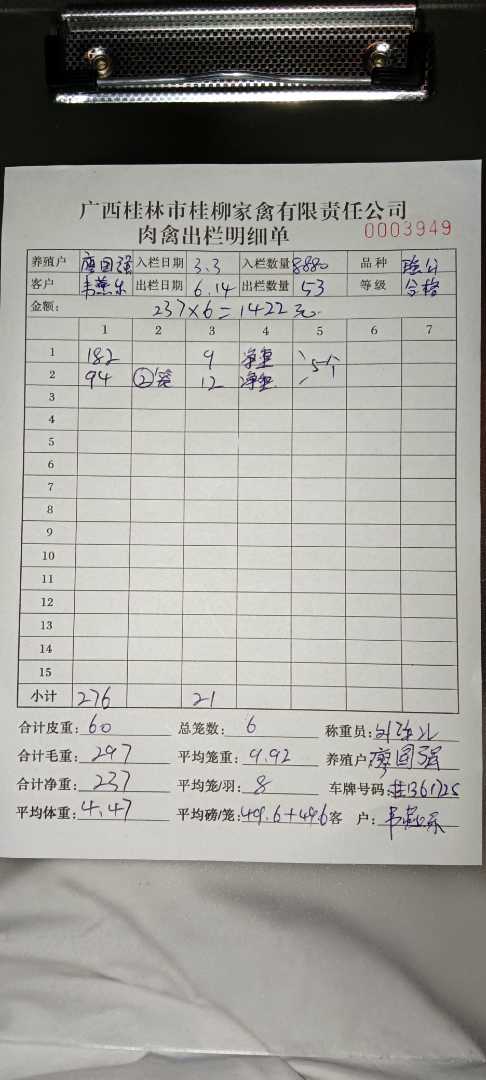 广西桂林市桂柳家禽有限责任公司
肉禽出栏明细单 0003949
养殖户 廖国强 入栏日期 3.3 入栏数量 8880 品种
客户 出栏日期 6.14 出栏数量 53 等级 合格
金额: 237×6=1422元
1 2 3 4 5 6 7
1 182 9 净重 5个
2 94 ②笼 12 净重
3
4
5
6
7
8
9
10
11
12
13
14
15
小计 276 21
合计皮重: 60 总笼数: 6 称重员:
合计毛重: 297 平均笼重: 9.92 养殖户: 廖国强
合计净重: 237 平均笼/羽: 8 车牌号码: 桂
平均体重: 4.47 平均磅/笼: 49.6+49.6 客 户: